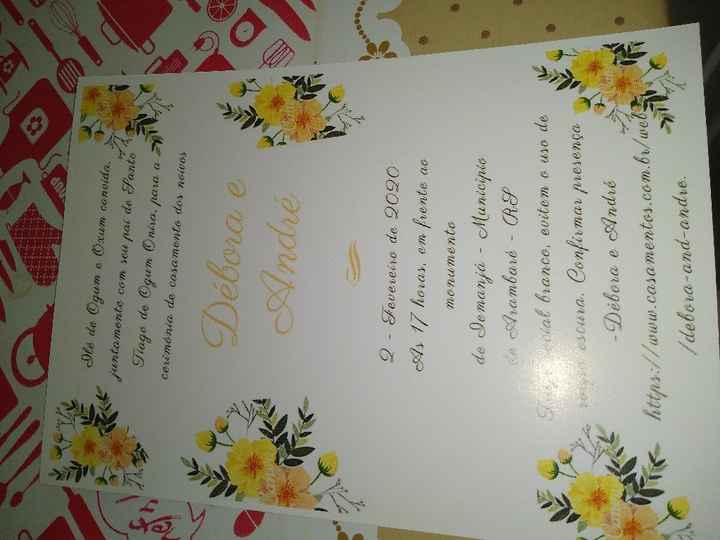 Ilê de Ogum e Oxum convida,
juntamente com seu pai de Santo
Tiago de Ogum Onira, para a
cerimônia de casamento dos noivos
Débora e
André
2 - Fevereiro de 2020
As 17 horas, em frente ao
monumento
de Iemanjá - Município
de Arambaré - RS
social branco, evitem o uso de
roupa escura. Confirmar presença
-Débora e André
https://www.casamentos.com.br/web
/debora-and-andre.